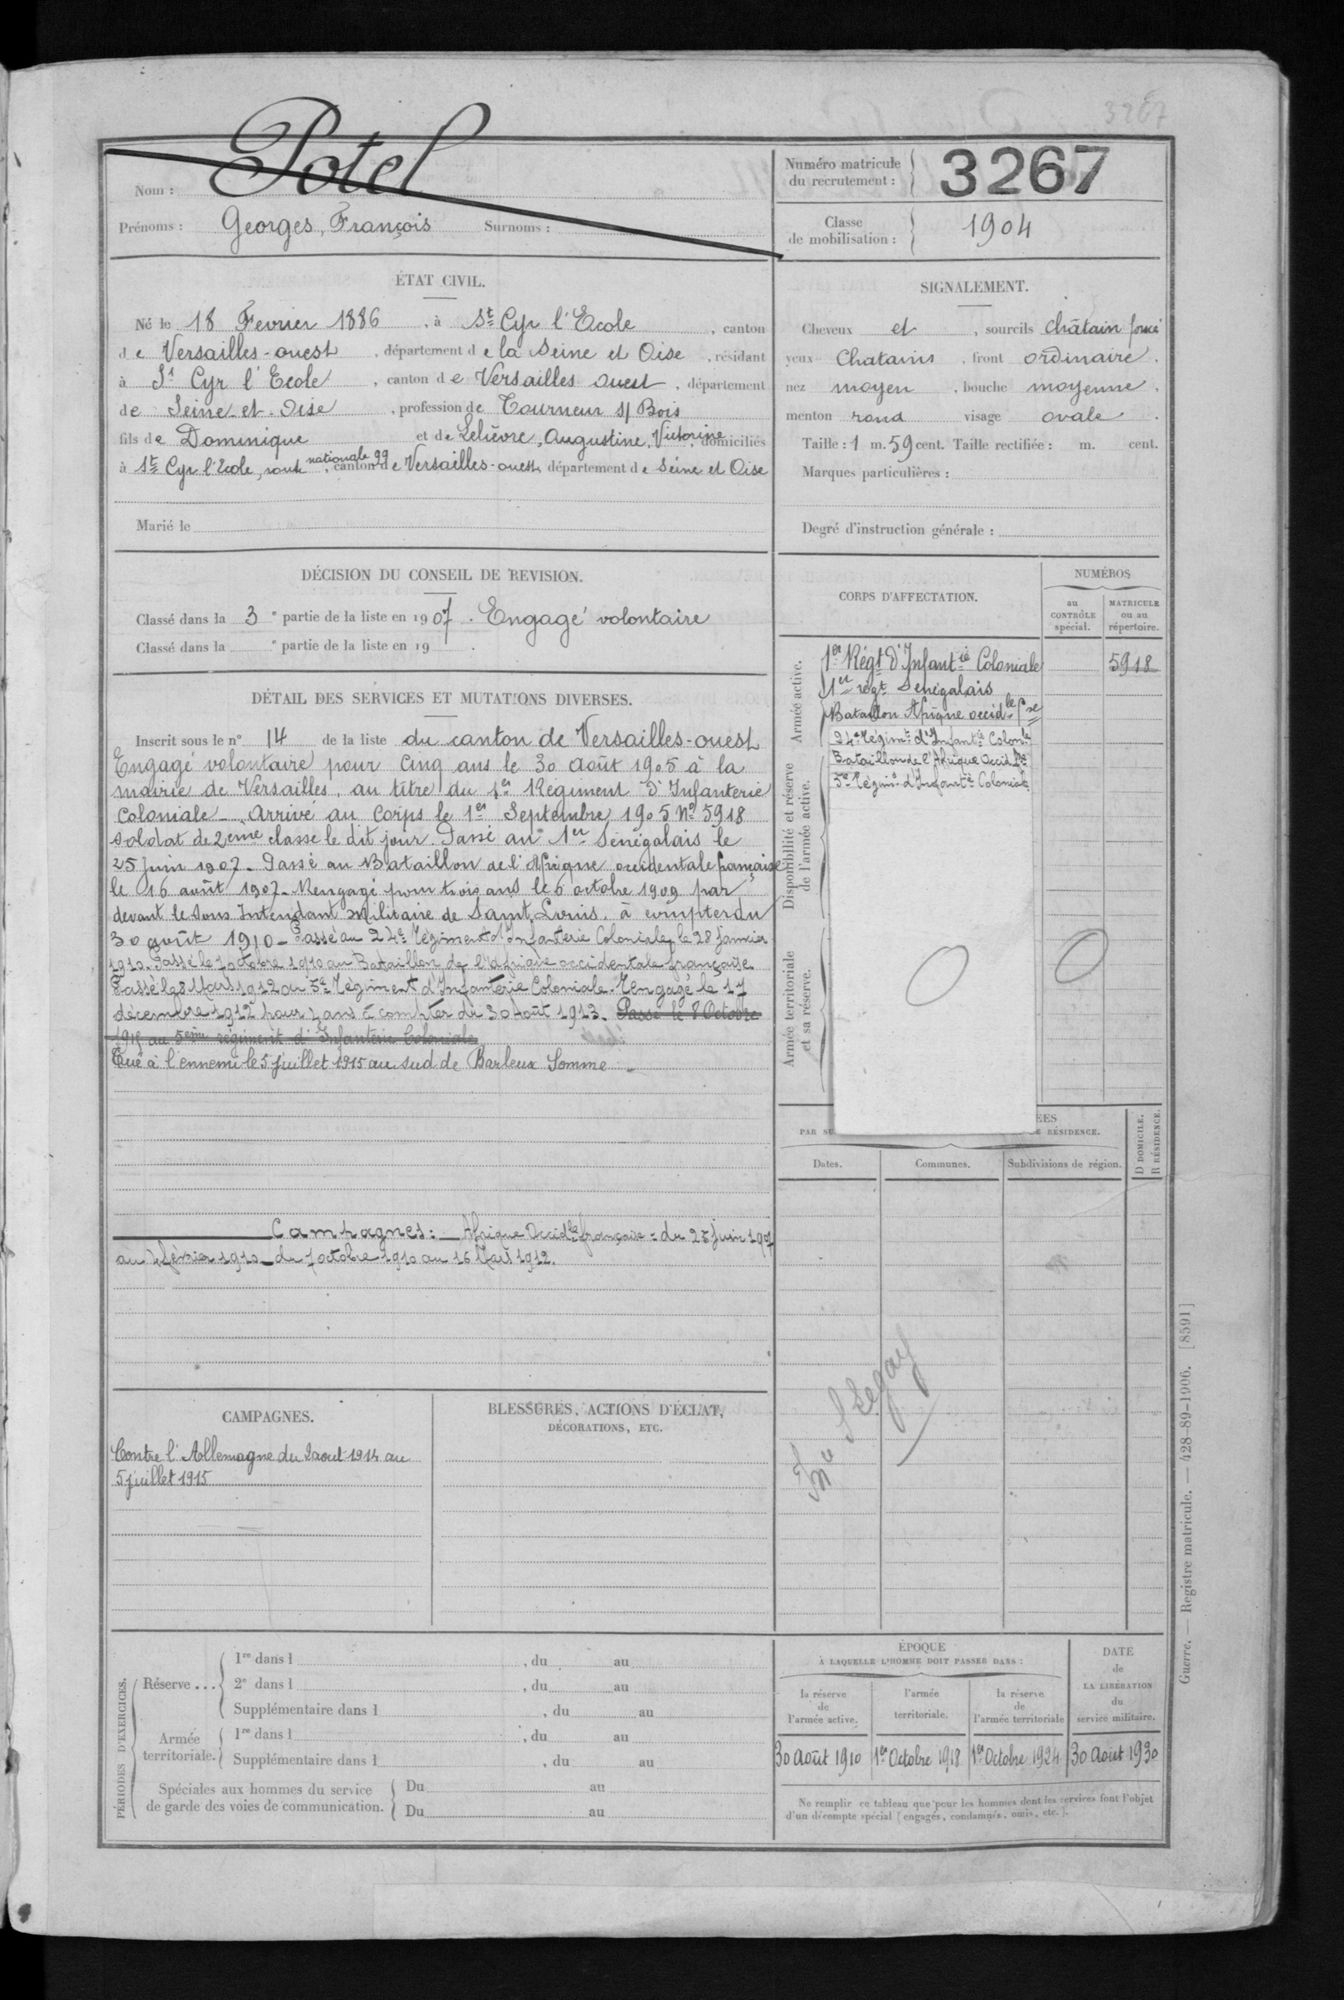 3267
Potel
Nom :
Prénoms : Georges, François Surnoms :
Numéro matricule
du recrutement : 3267
Classe
de mobilisation : 1904
ÉTAT CIVIL.
Né le 18 Fevrier 1886, à St Cyr l'Ecole, canton
de Versailles-ouest, département de la Seine et Oise, résidant
à St Cyr l'Ecole, canton de Versailles ouest, département
de Seine-et-Oise, profession de Tourneur s/ Bois
fils de Dominique et de Lelièvre, Augustine, Victorine domiciliés
à St Cyr l'Ecole, route nationale 99, canton de Versailles-ouest département de Seine et Oise
Marié le
SIGNALEMENT.
Cheveux et, sourcils châtain foncé
yeux Chatains, front ordinaire,
nez moyen, bouche moyenne,
menton rond visage ovale.
Taille : 1 m. 59 cent. Taille rectifiée : m. cent.
Marques particulières :
Degré d'instruction générale :
DÉCISION DU CONSEIL DE REVISION.
Classé dans la 3e partie de la liste en 1907. Engagé volontaire
Classé dans la e partie de la liste en 19 .
DÉTAIL DES SERVICES ET MUTATIONS DIVERSES.
Inscrit sous le n° 14 de la liste du canton de Versailles-ouest
Engagé volontaire pour cinq ans le 30 Août 1905 à la
mairie de Versailles, au titre du 1er Régiment d'Infanterie
Coloniale. Arrivé au Corps le 1er Septembre 1905 No 5918
soldat de 2eme classe le dit jour. Passé au 1er Sénégalais le
25 Juin 1907. Passé au Bataillon de l'Afrique occidentale française
le 16 août 1907. Rengagé pour trois ans le 6 octobre 1909 par
devant le Sous Intendant Militaire de Saint Louis, à compter du
30 août 1910 - Passé au 24e Régiment d'Infanterie Coloniale le 28 Janvier
1910. Passé le 7 octobre 1910 au Bataillon de l'Afrique occidentale française
Passé le 8 Mars 1912 au 5e Régiment d'Infanterie Coloniale. Rengagé le 17
décembre 1912 pour ans à compter du 30 Août 1913. Passé le 8 Octobre
1915 au 5eme régiment d'Infanterie Coloniale
Tué à l'ennemi le 5 juillet 1915 au sud de Barleux Somme
Campagnes : Afrique Occidle française : du 25 Juin 1907
au février 1910 - du 7 octobre 1910 au 16 Mars 1912.
CORPS D'AFFECTATION.
NUMÉROS
au
CONTRÔLE
spécial.
MATRICULE
ou au
répertoire.
Armée active.
Disponibilité et réserve
de l'armée active.
Armée territoriale
et sa réserve.
1er Régt d'Infantie Coloniale 5918
1er régt Sénégalais
Bataillon Afrique occidle fse
24e Régimt d'Infantie Colonle
Bataillon de l'Afrique Occid fse
5e Régimt d'Infantie Coloniale
PAR SU
ÉES
E RÉSIDENCE.
Dates.
Communes.
Subdivisions de région.
D DOMICILE.
R RÉSIDENCE.
CAMPAGNES.
Contre l'Allemagne du 2 aout 1914 au
5 juillet 1915
BLESSURES, ACTIONS D'ÉCLAT,
DÉCORATIONS, ETC.
PÉRIODES D'EXERCICES.
Réserve ... 1re dans l , du au
2e dans l , du au
Supplémentaire dans l , du au
Armée
territoriale. 1re dans l , du au
Supplémentaire dans l , du au
Spéciales aux hommes du service
de garde des voies de communication. Du au
Du au
ÉPOQUE
À LAQUELLE L'HOMME DOIT PASSER DANS :
la réserve
de
l'armée active.
l'armée
territoriale.
la réserve
de
l'armée territoriale
DATE
de
LA LIBÉRATION
du
service militaire.
30 Août 1910 1er Octobre 1918 1er Octobre 1924 30 Aout 1930
Ne remplir ce tableau que pour les hommes dont les services font l'objet
d'un décompte spécial (engagés, condamnés, omis, etc.).
Guerre. — Registre matricule. — 428-89-1906. [8591]